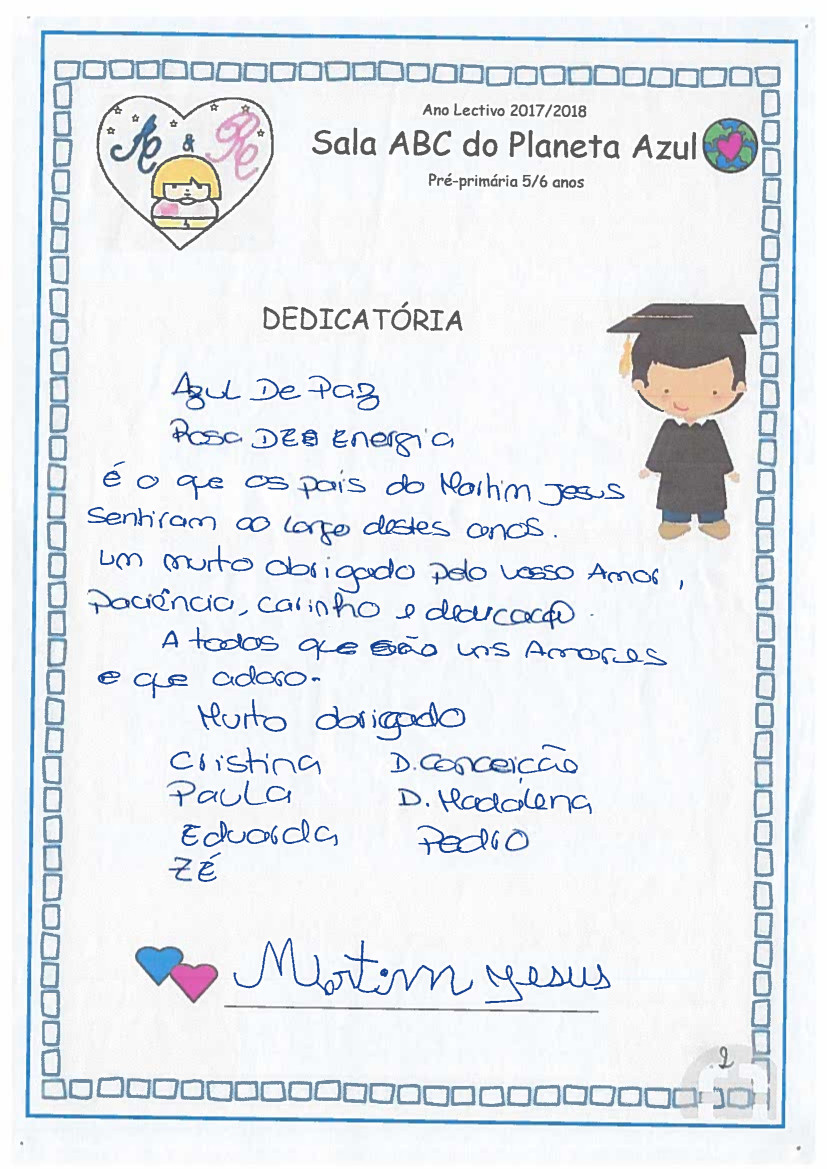 A & R
Ano Lectivo 2017/2018
Sala ABC do Planeta Azul
Pré-primária 5/6 anos
DEDICATÓRIA
Azul De Paz
Rosa DE Energia
é o que os pais do Martim Jesus
sentiram ao longo destes anos.
um muito obrigado pelo vosso Amor,
paciência, carinho e dedicação.
A todos que são uns Amores
e que adoro.
Muito obrigado
Cristina D. Conceição
Paula D. Madalena
Eduarda Pedro
ZÉ
Martim Jesus
2